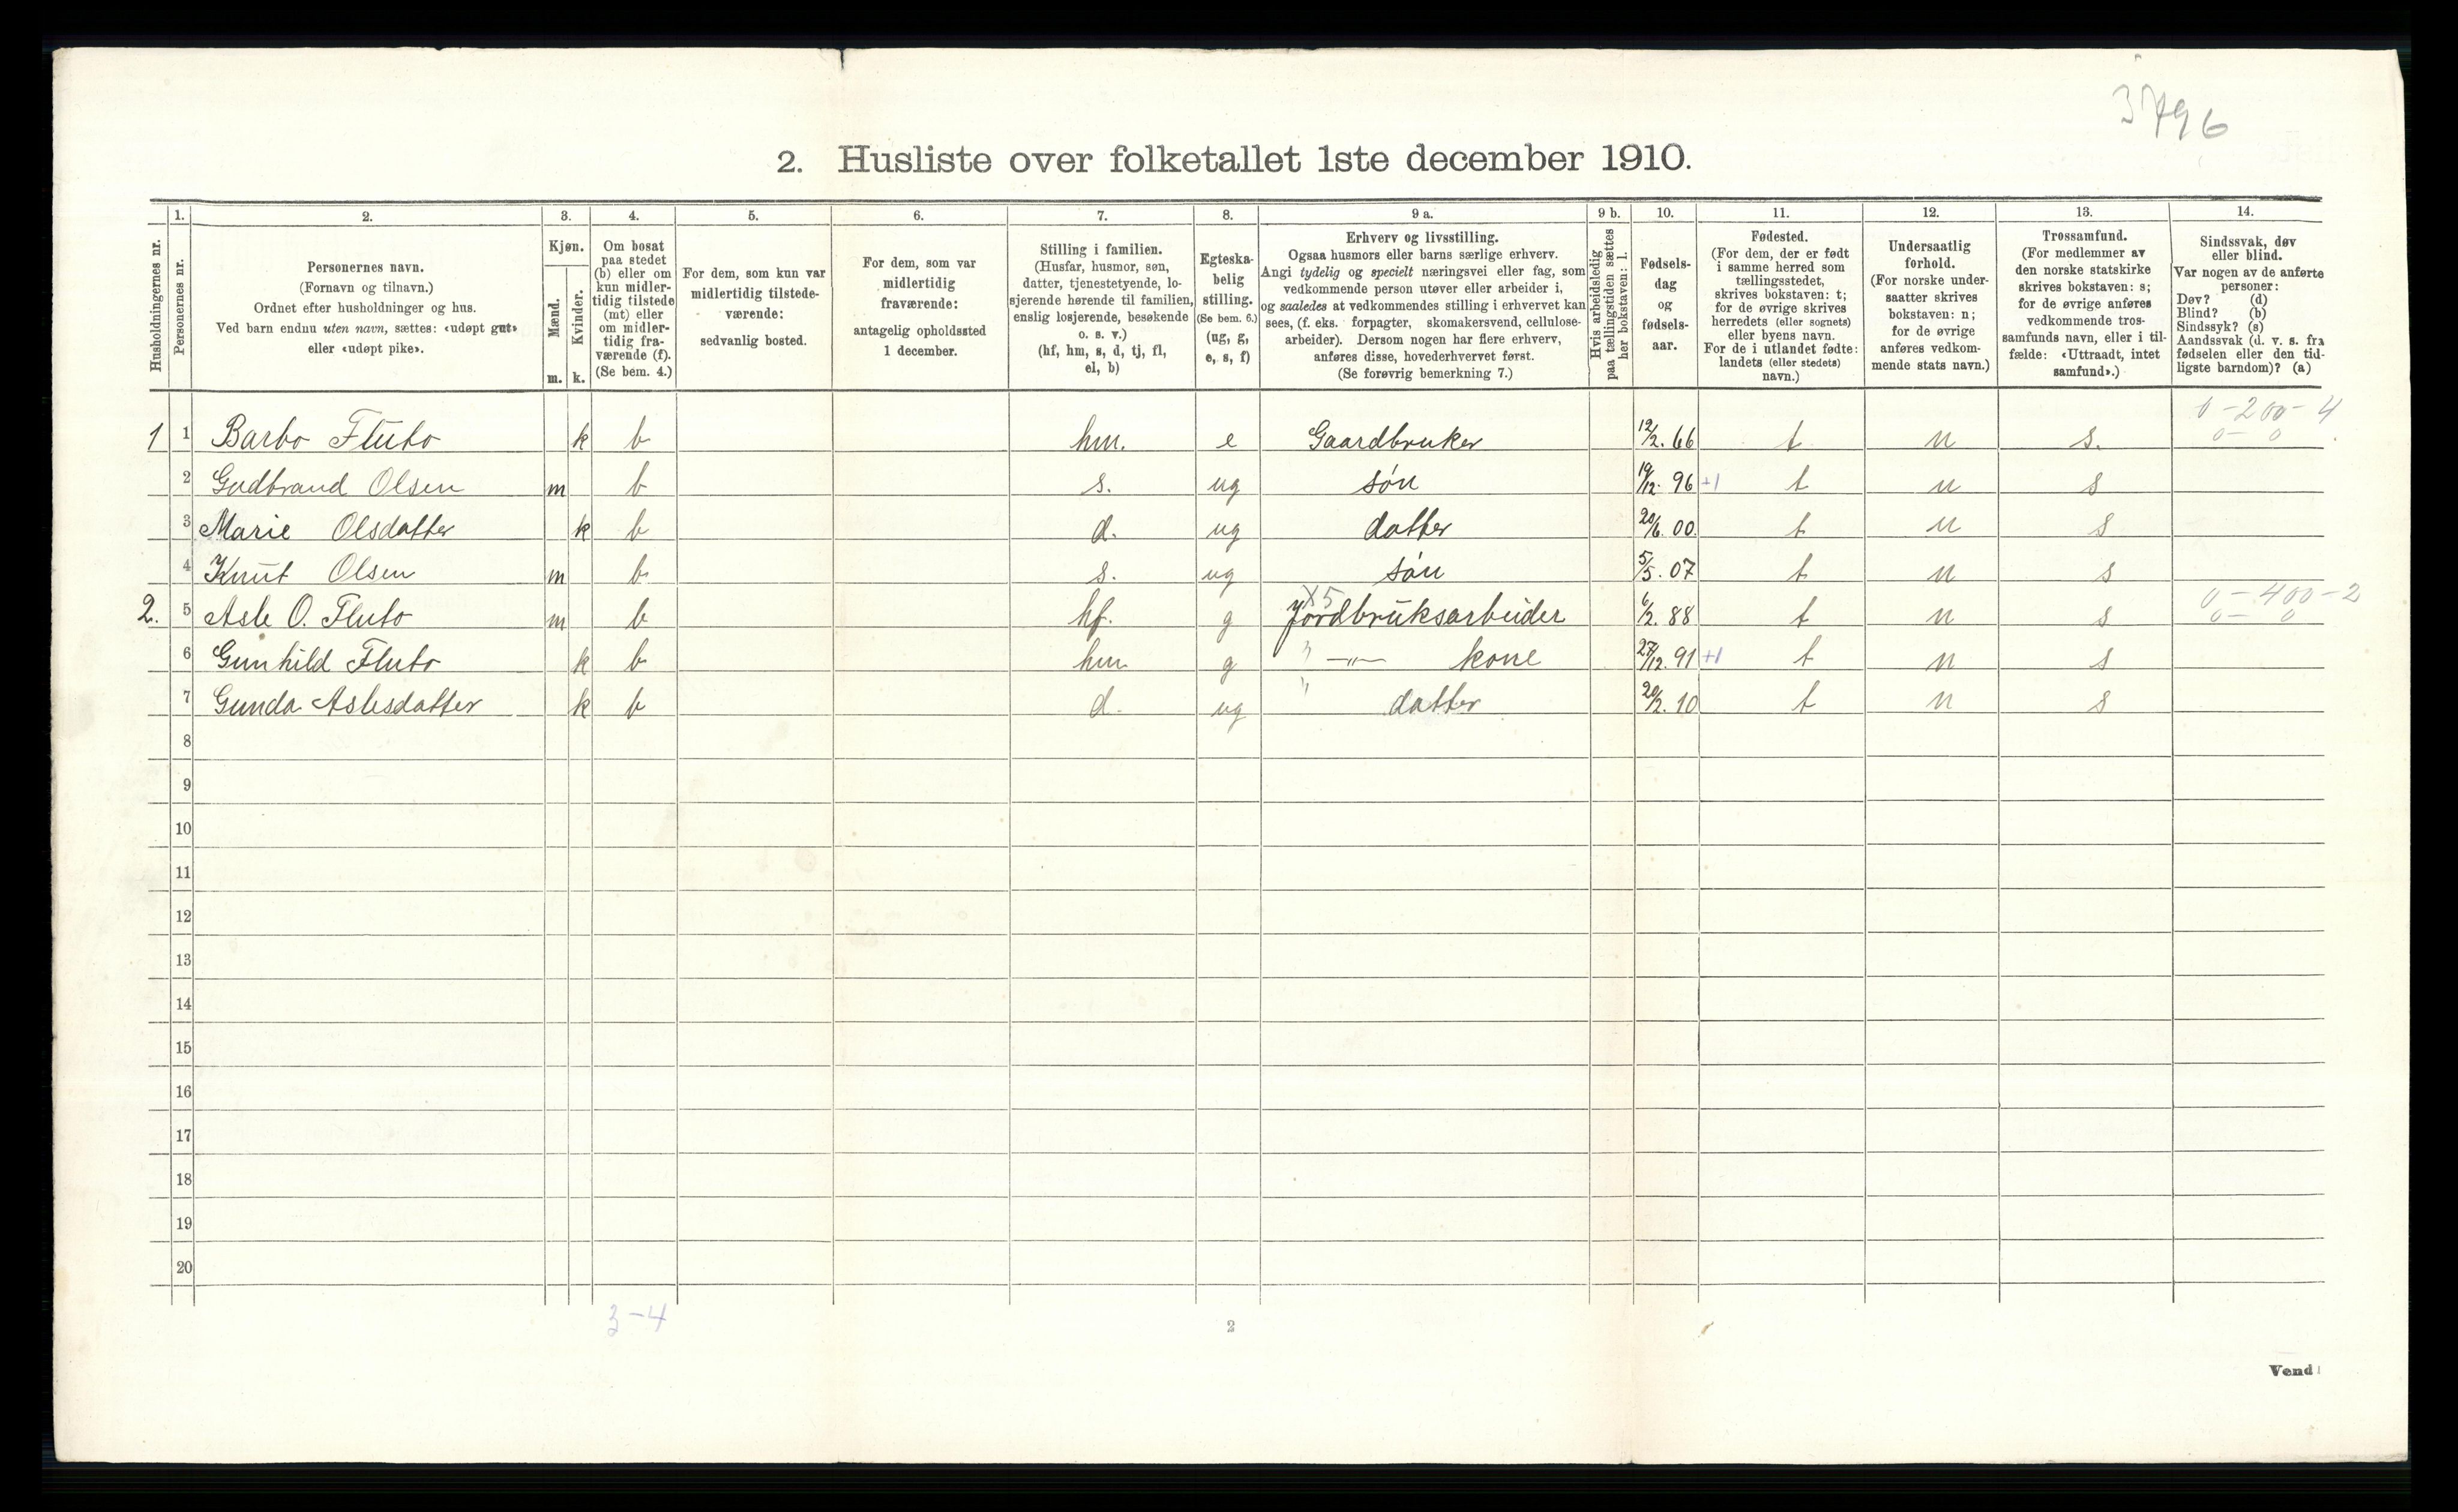 3796
2. Husliste over folketallet 1ste december 1910.
Husholdningernes nr.
1.
Personernes nr.
2.
Personernes navn.
(Fornavn og tilnavn.)
Ordnet efter husholdninger og hus.
Ved barn endnu uten navn, sættes: «udøpt gut»
eller «udøpt pike».
3.
Kjøn.
Mænd.
Kvinder.
m. k.
4.
Om bosat
paa stedet
(b) eller om
kun midler-
tidig tilstede
(mt) eller
om midler-
tidig fra-
værende (f).
(Se bem. 4.)
5.
For dem, som kun var
midlertidig tilstede-
værende:
sedvanlig bosted.
6.
For dem, som var
midlertidig
fraværende:
antagelig opholdssted
1 december.
7.
Stilling i familien.
(Husfar, husmor, søn,
datter, tjenestetyende, lo-
sjerende hørende til familien,
enslig losjerende, besøkende
o. s. v.)
(hf, hm, s, d, tj, fl,
el, b)
8.
Egteska-
belig
stilling.
(Se bem. 6.)
(ug, g,
e, s, f)
9 a.
Erhverv og livsstilling.
Ogsaa husmors eller barns særlige erhverv.
Angi tydelig og specielt næringsvei eller fag, som
vedkommende person utøver eller arbeider i,
og saaledes at vedkommendes stilling i erhvervet kan
sees, (f. eks. forpagter, skomakersvend, cellulose-
arbeider). Dersom nogen har flere erhverv,
anføres disse, hovederhvervet først.
(Se forøvrig bemerkning 7.)
9 b.
Hvis arbeidsledig
paa tællingstiden sættes
her bokstaven: l.
10.
Fødsels-
dag
og
fødsels-
aar.
11.
Fødested.
(For dem, der er født
i samme herred som
tællingsstedet,
skrives bokstaven: t;
for de øvrige skrives
herredets (eller sognets)
eller byens navn.
For de i utlandet fødte:
landets (eller stedets)
navn.)
12.
Undersaatlig
forhold.
(For norske under-
saatter skrives
bokstaven: n;
for de øvrige
anføres vedkom-
mende stats navn.)
13.
Trossamfund.
(For medlemmer av
den norske statskirke
skrives bokstaven: s;
for de øvrige anføres
vedkommende tros-
samfunds navn, eller i til-
fælde: «Uttraadt, intet
samfund».)
14.
Sindssvak, døv
eller blind.
Var nogen av de anførte
personer:
Døv? (d)
Blind? (b)
Sindssyk? (s)
Aandssvak (d. v. s. fra
fødselen eller den tid-
ligste barndom)? (a)
1 1 Barbo Fluto k b hm. e Gaardbruker 12/2. 66 t n s. 0-200-4 0-0
2 Gudbrand Olsen m b s. ug søn 19/12. 96 +1 t n s
3 Marie Olsdatter k b d. ug datter 20/6. 00. t n s
4 Knut Olsen m b s. ug søn 5/5. 07 t n s
2. 5 Asle O. Fluto m b hf. g X5 Jordbruksarbeider 6/2. 88 t n s 0-400-2 0-0
6 Gunhild Fluto k b hm g " —"— kone 27/12. 91 +1 t n s
7 Gunda Aslesdatter k b d. ug " datter 20/2. 10 t n s
8
9
10
11
12
13
14
15
16
17
18
19
20
3-4
2
Vend